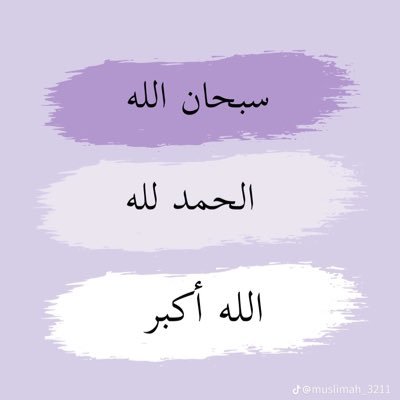 سبحان الله
الحمد لله
الله أكبر
@muslimah_3211